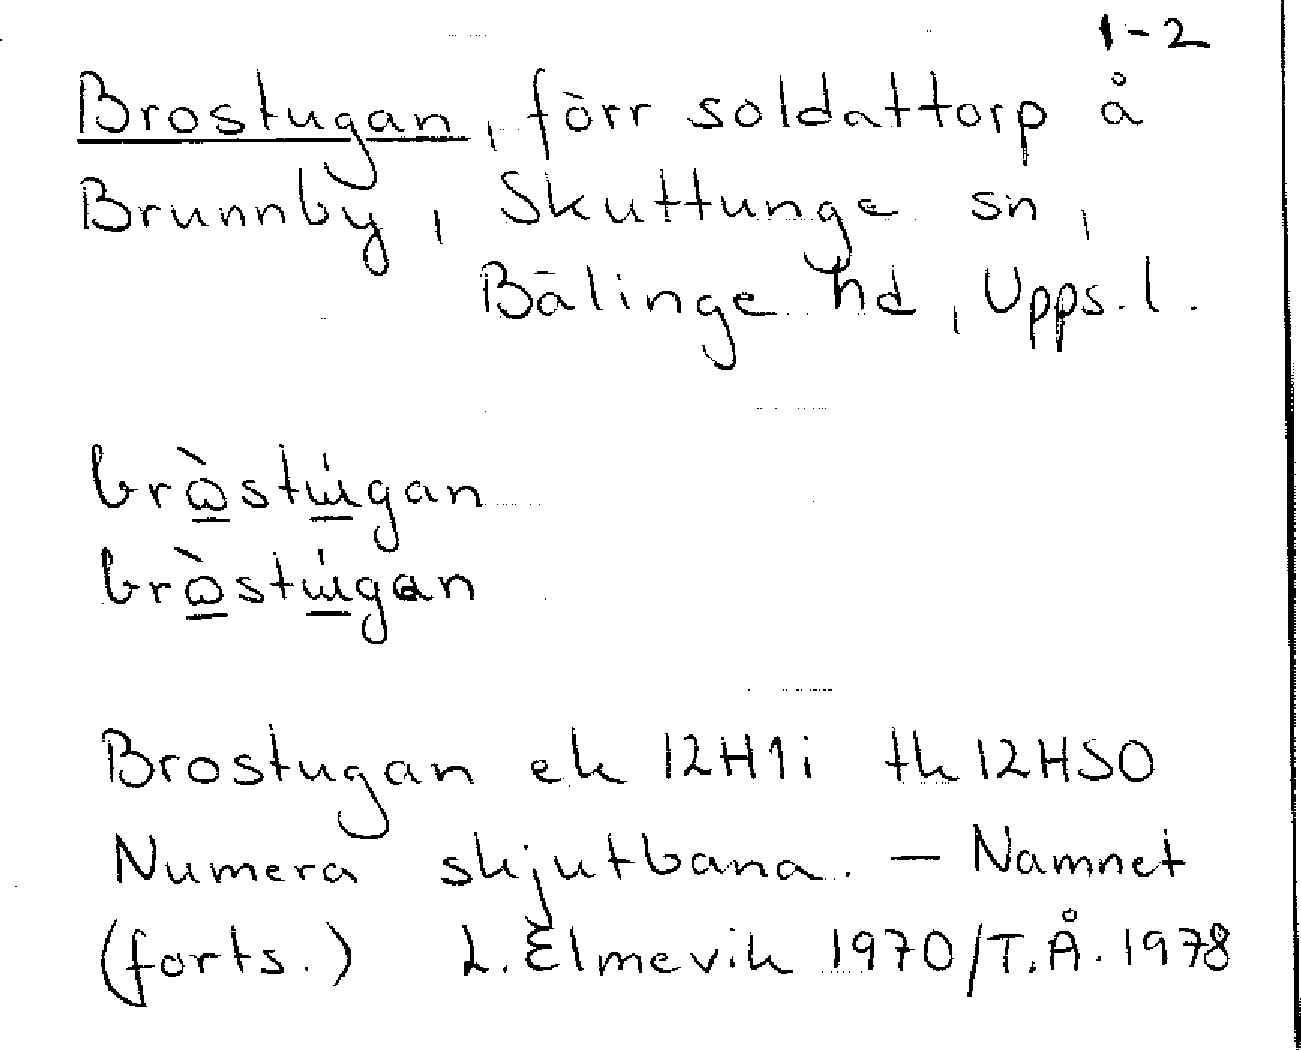 1-2
Brostugan, förr soldattorp å
Brunnby, Skuttunge sn,
Bälinge hd, Upps. l.
brὼstɯ́gan
brὼstɯ́gɑn
Brostugan ek 12H1i tk 12HSO
Numera skjutbana. — Namnet
(forts.) L. Elmevik 1970/T.Å. 1978